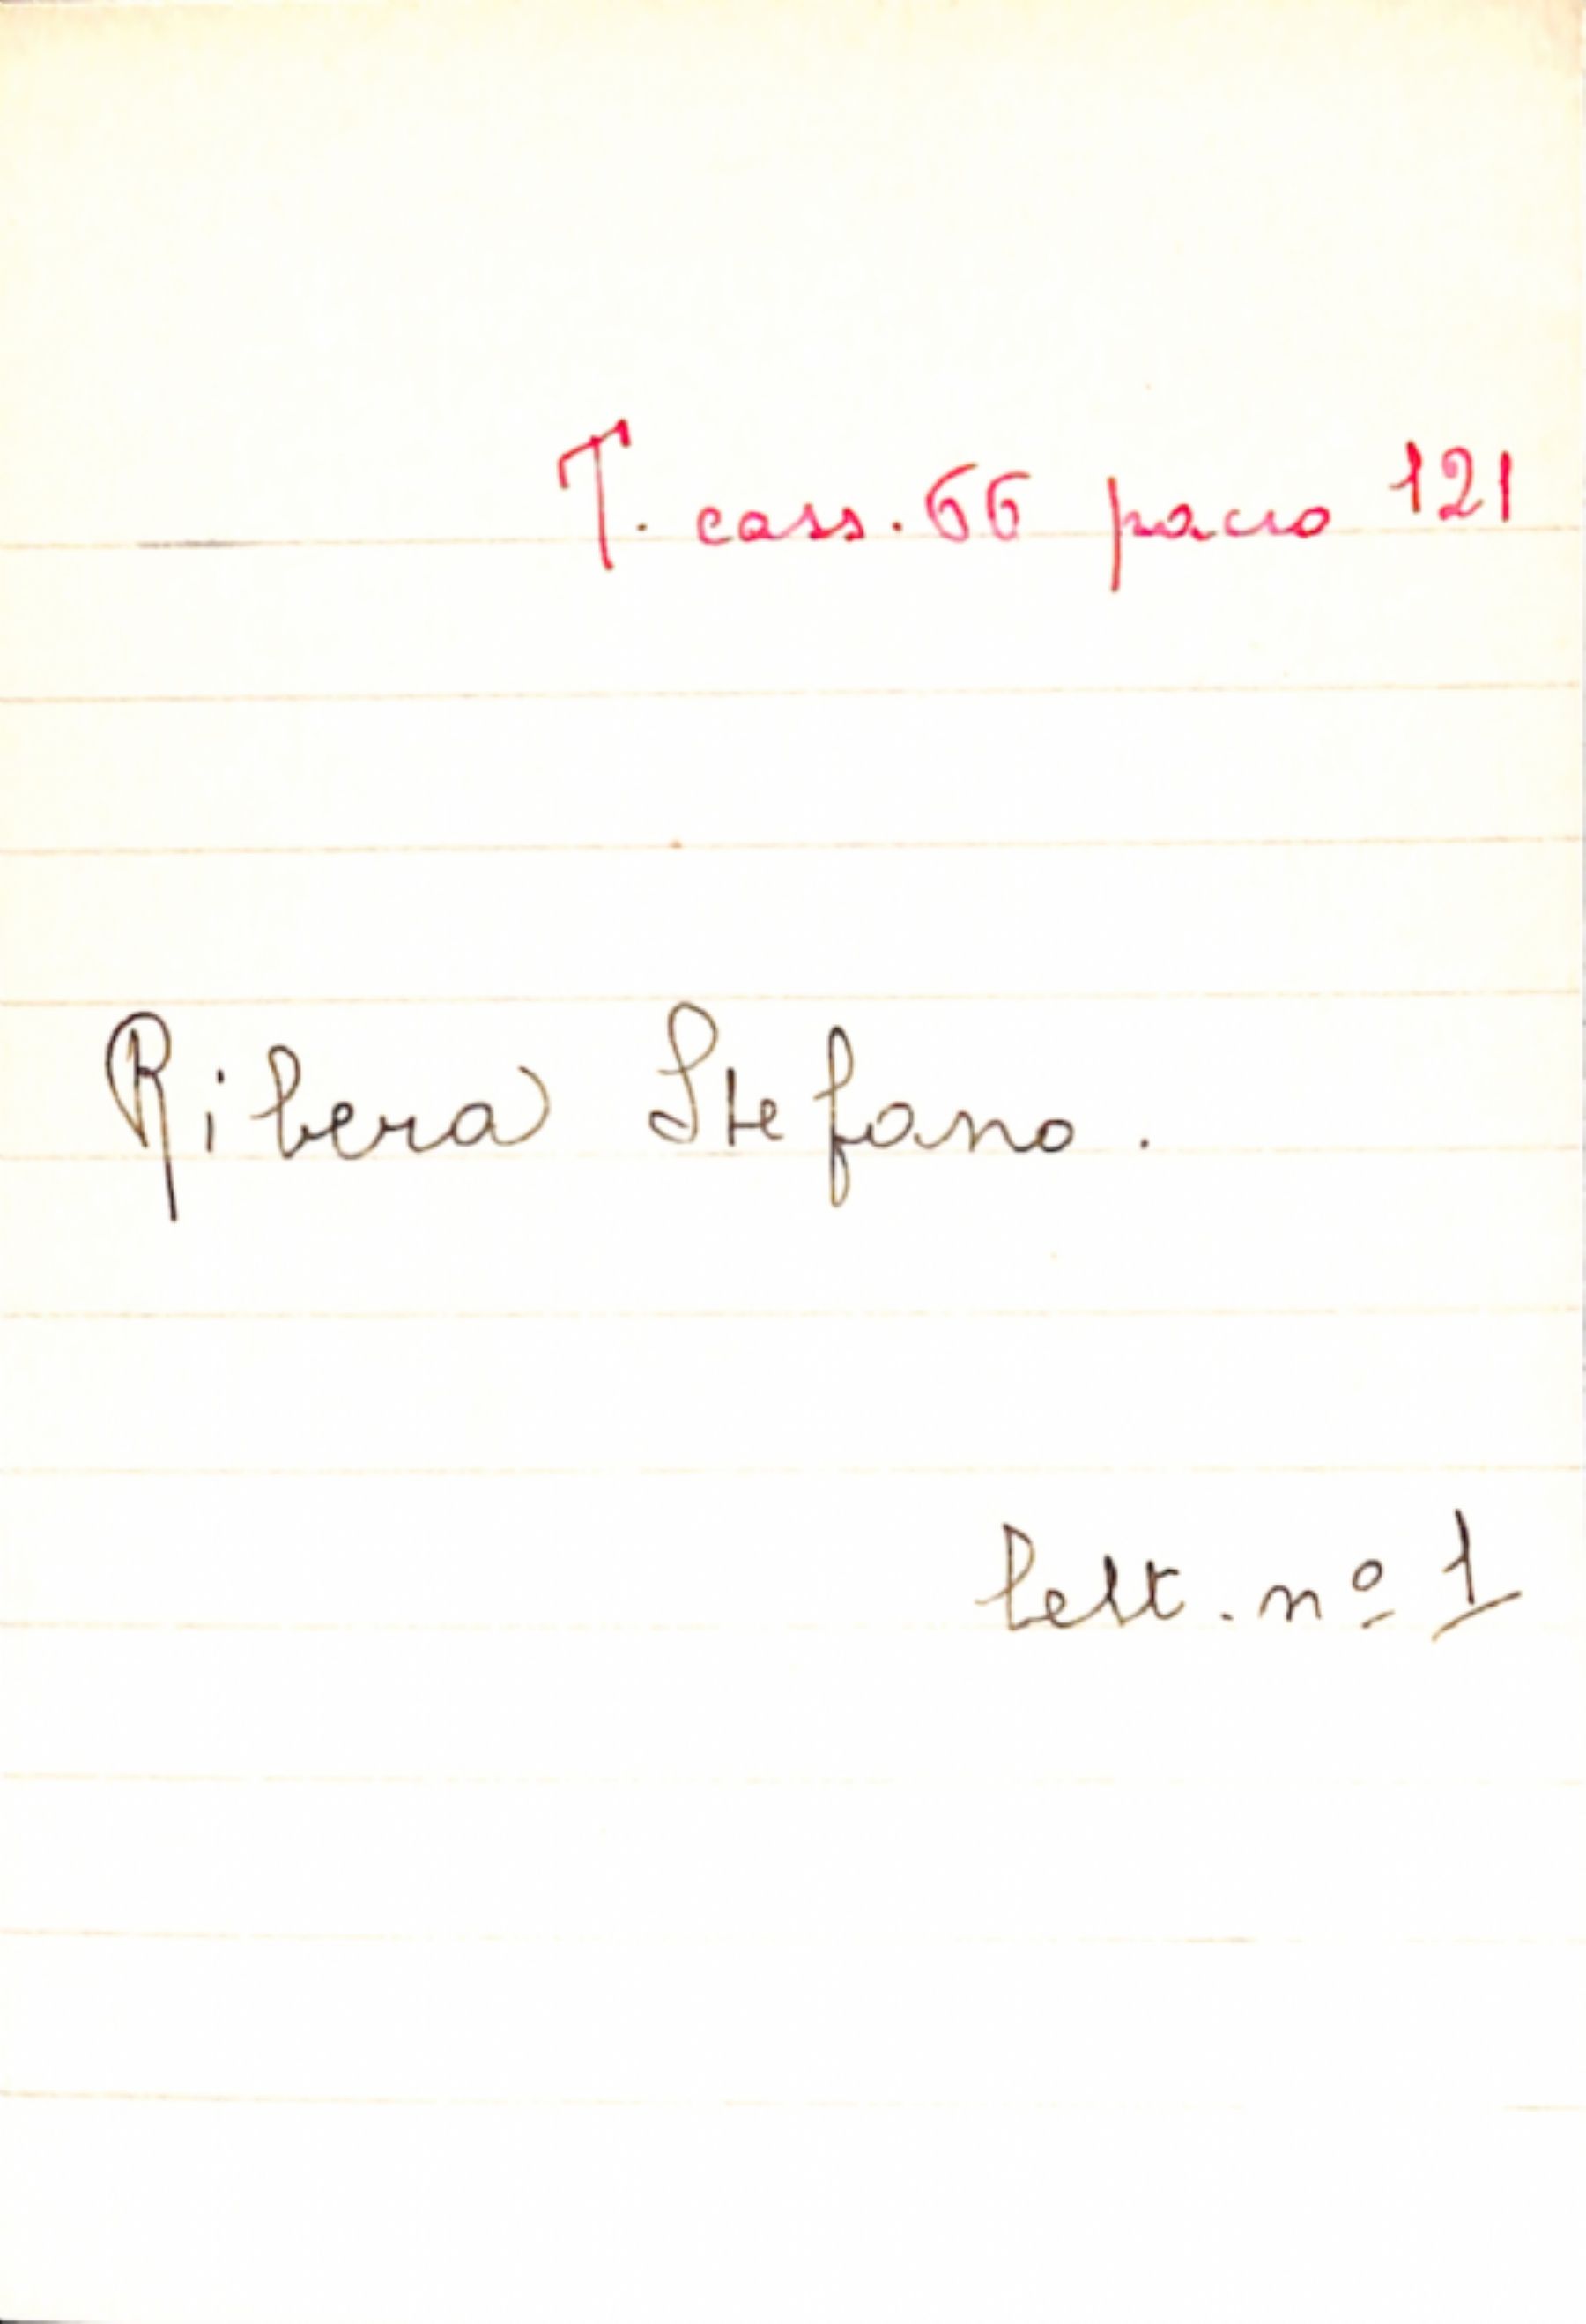 T. cass. 66 pacco 121
Ribera Stefano.
lett. nº 1